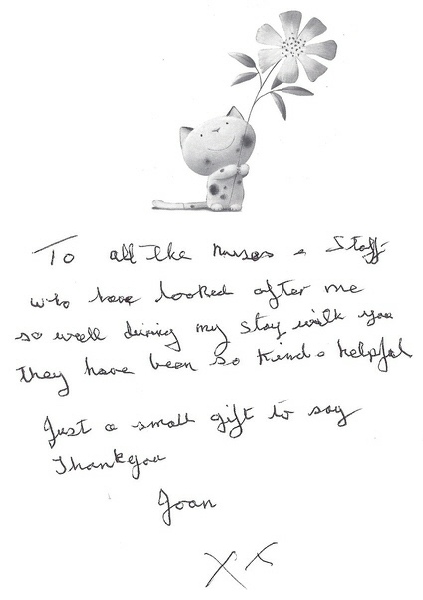 To all the nurses & Staff
who have looked after me
so well during my stay with you
they have been so kind & helpful
Just a small gift to say
Thankyou
Joan
XX